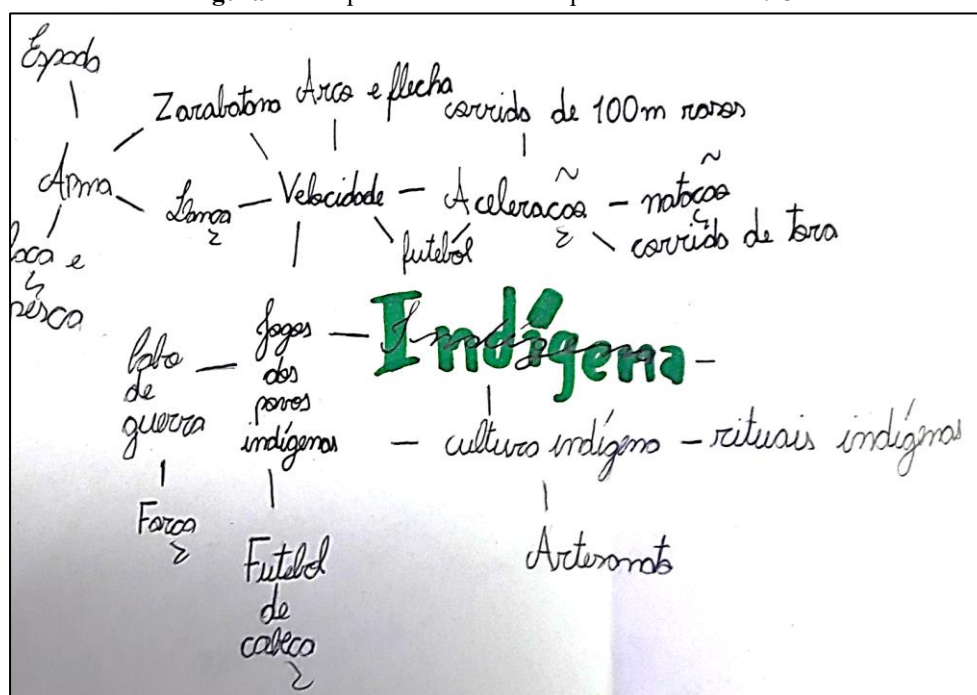 Espada
Zarabatana
Arco e flecha
corrida de 100m rasos
Arma
Lança
Velocidade
Aceleração
natação
corrida de tora
futeból
caca e
pesca
Indígena
Jogos
dos
povos
indígenas
Cabo
de
guerra
cultura indígena
rituais indígenas
Força
Futebol
de
cabeça
Artesanato